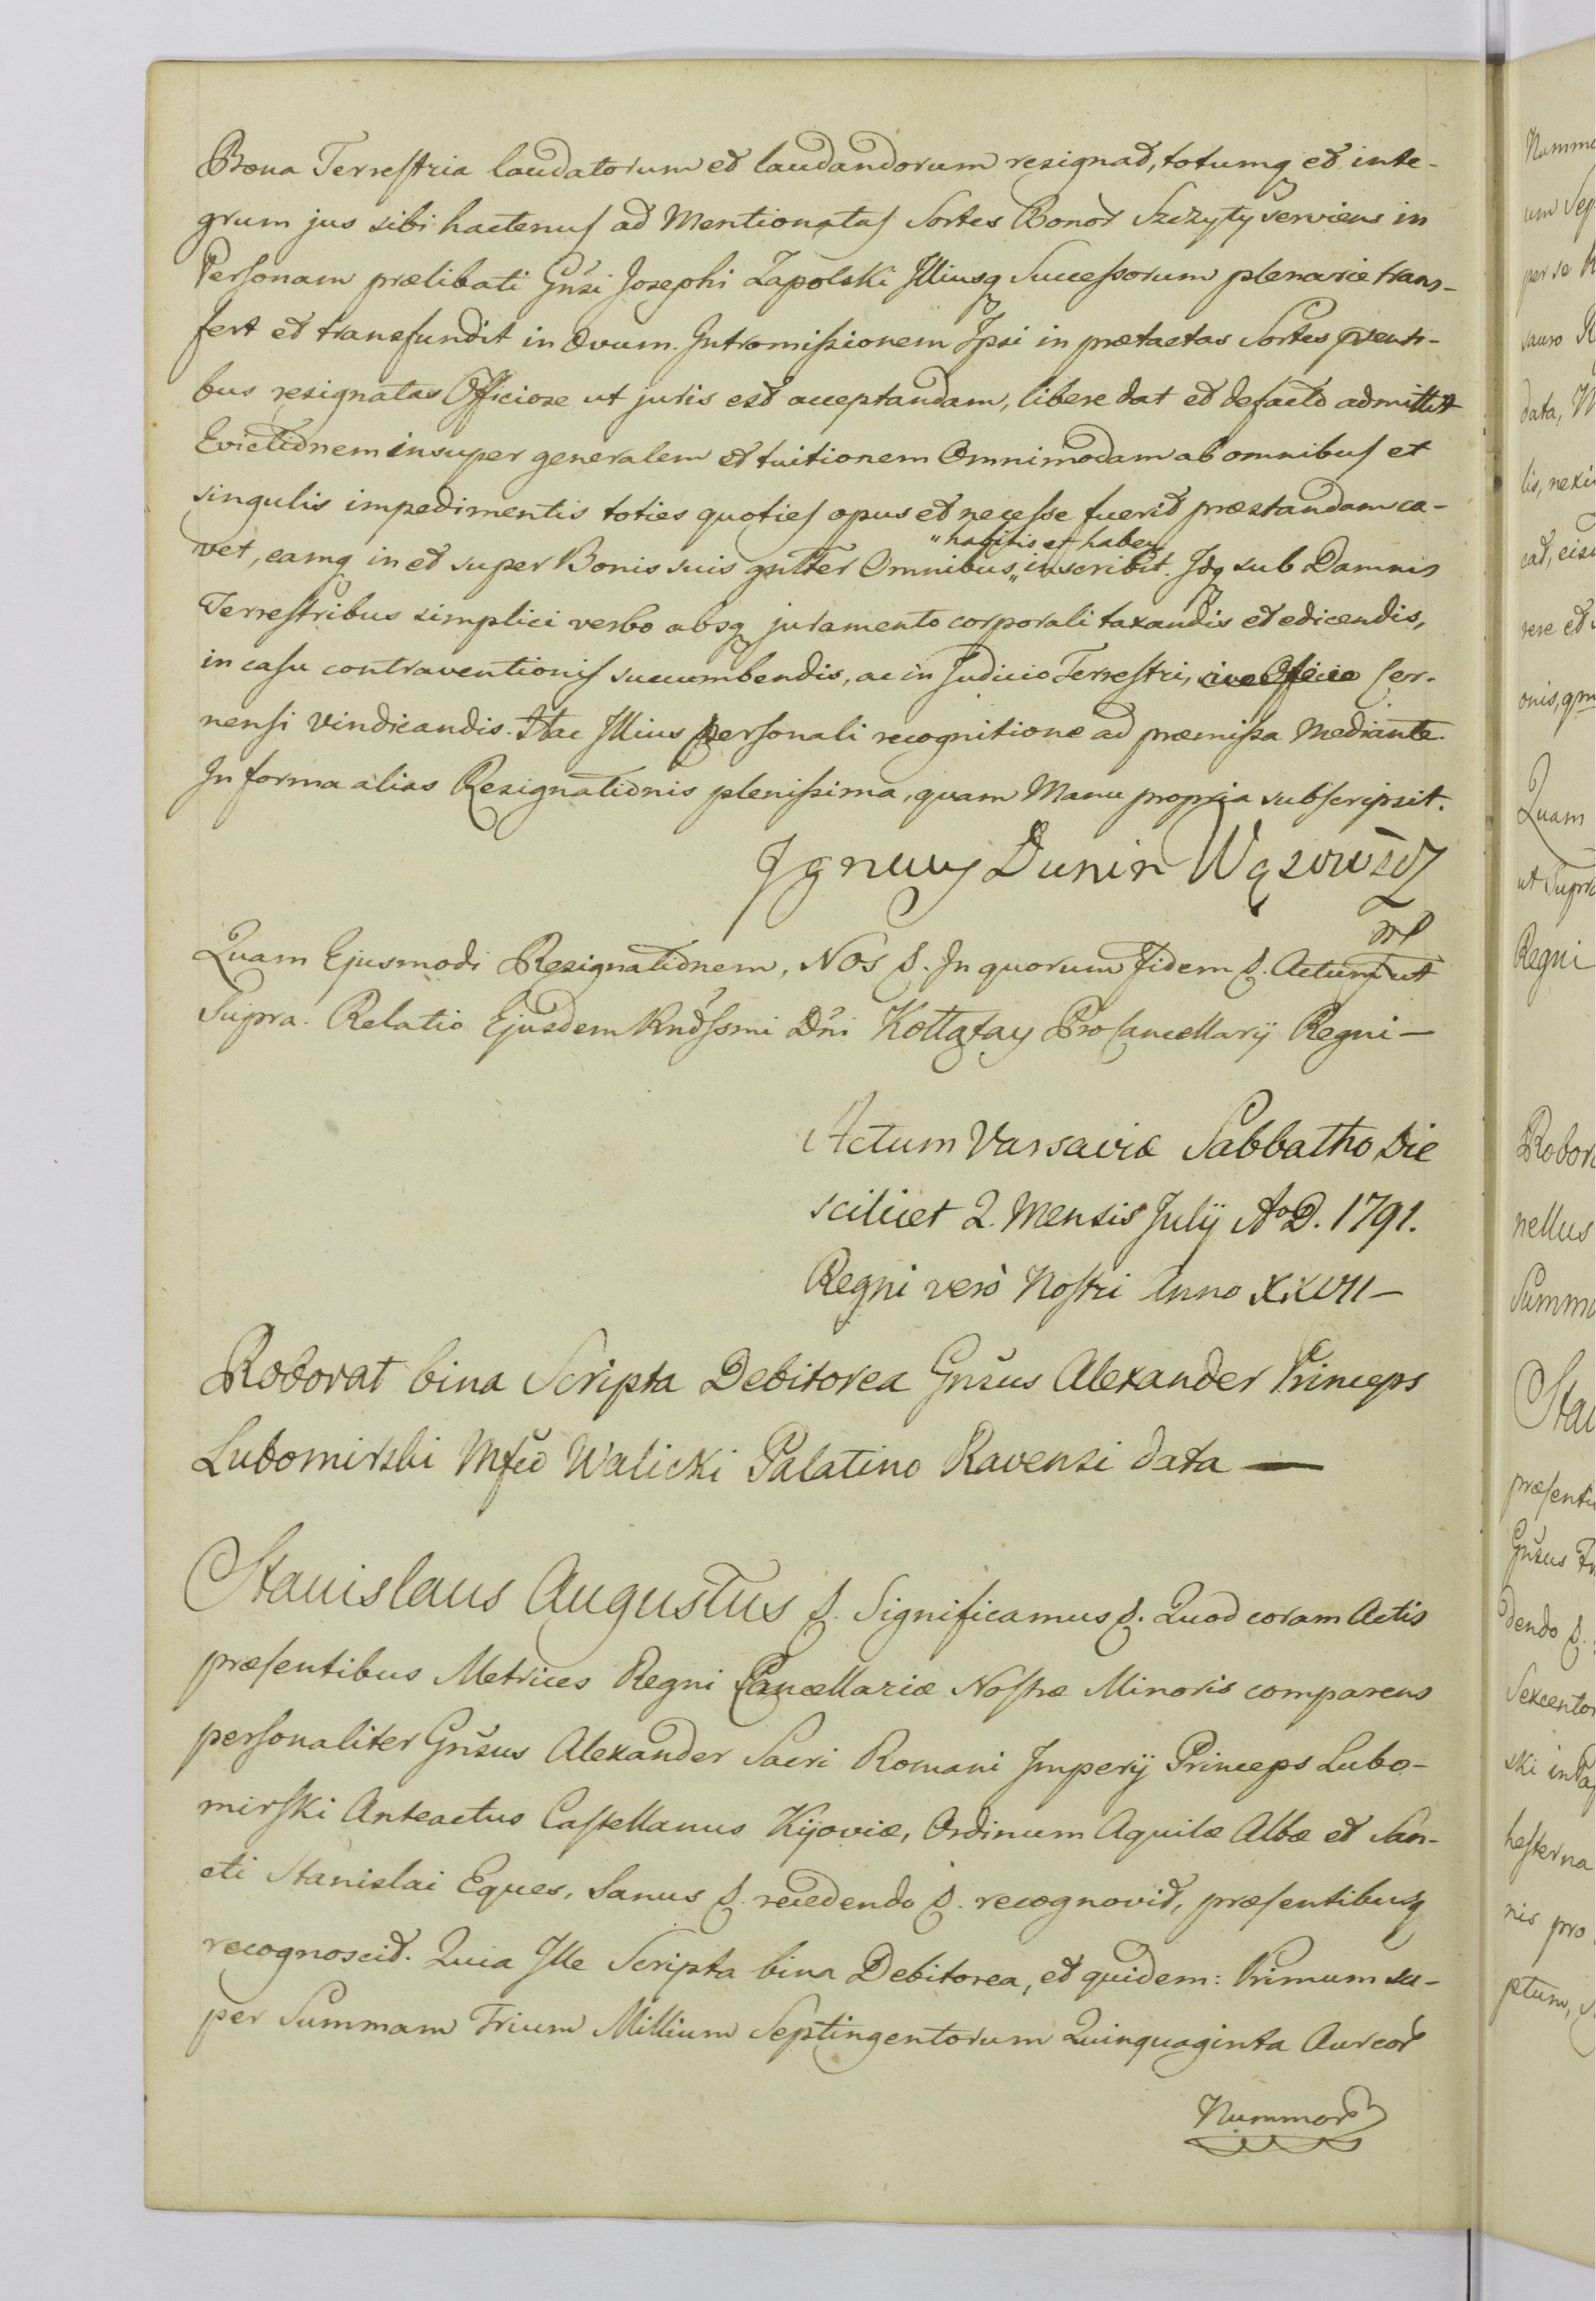 Bona Terrestria laudatorum et laudandorum resignat, totumq et inte-
grum jus sibi hactenus ad Mentionatas Sortes Bonor Szczyty serviens in
Personam prælibati Gnsi Josephi Zapolski Illiusq Successorum plenarie trans-
fert et transfundit in ævum. Intromissionem Ipsi in prætactas Sortes præsenti-
bus resignatas Officiose ut juris est acceptandam, libere dat et defacto admittit
Evictionem insuper generalem et tuitionem Omnimodam ab omnibus et
singulis impedimentis toties quoties opus et necesse fuerit præstandam ca-
"habitis et haben
vet, eamq in et super Bonis suis gnlter Omnibus,, inscribit. Idq sub Damnis
Terrestribus simplici verbo absq juramento corporali taxandis et edicendis,
in casu contraventionis succumbendis, ac in Judicio Terrestri, Cer-
nensi vindicandis. Hac Illius personali recognitione ad præmissa Mediante.
In forma alias Resignationis plenissima, quam Manu propria subscripsit.
Ignacy Dunin Wąsowicz
mp
Quam Ejusmodi Resignationem, Nos &. In quorum Fidem &. Actum ut
Supra. Relatio Ejusdem Rndssmi Dni Kołłątay ProCancellarij Regni —
Actum Varsaviæ Sabbatho Die
scilicet 2. Mensis Julij Ao D. 1791.
Regni vero Nostri Anno XXVII —
Roborat bina Scripta Debitorea Gnsus Alexander Princeps
Lubomirski Mfco Walicki Palatino Ravensi data —
Stanislaus Augustus &. Significamus &. Quod coram Actis
præsentibus Metrices Regni Cancellariæ Nostræ Minoris comparens
personaliter Gnsus Alexander Sacri Romani Imperij Princeps Lubo-
mirski Anteactus Castellanus Kijoviæ, Ordinum Aquilæ Albæ et San-
cti Stanislai Eques, Sanus &. recedendo &. recognovit, præsentibusq
recognoscit. Quia Ille Scripta bina Debitorea, et quidem: Primum su-
per Summam Trium Millium Septingentorum Quinquaginta Aureor
Nummor